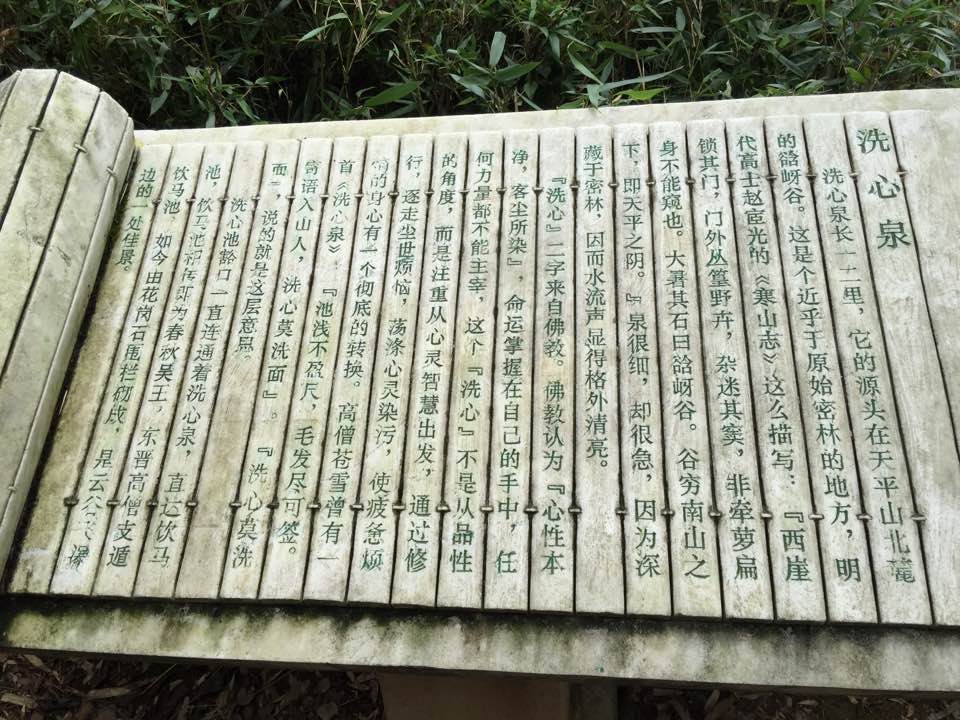 洗心泉
洗心泉长一二里，它的源头在天平山北麓
的谽岈谷。这是个近乎于原始密林的地方，明
代高士赵宧光的《寒山志》这么描写：『西崖
锁其门，门外丛篁野卉，杂迷其窦，非牵萝扁
身不能窥也。大暑其石曰谽岈谷。谷穷南山之
下，即天平之阴。』泉很细，却很急，因为深
藏于密林，因而水流声显得格外清亮。
『洗心』二字来自佛教。佛教认为『心性本
净，客尘所染』，命运掌握在自己的手中，任
何力量都不能主宰，这个『洗心』不是从品性
的角度，而是注重从心灵智慧出发，通过修
行，逐走尘世烦恼，荡涤心灵染污，使疲惫烦
恼的身心有一个彻底的转换。高僧苍雪曾有一
首《洗心泉》『池浅不盈尺，毛发尽可签。
寄语入山人，洗心莫洗面』。『洗心莫洗
面』，说的就是这层意思。
洗心池豁口一直连通着洗心泉，直达饮马
池，饮马池相传即为春秋吴王，东晋高僧支遁
饮马池。如今由花岗石围栏砌成，是云公瀑
边的一处佳景。